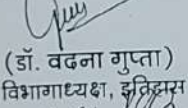 (डॉ. वदना गुप्ता)
विभागाध्यक्ष, इतिहास